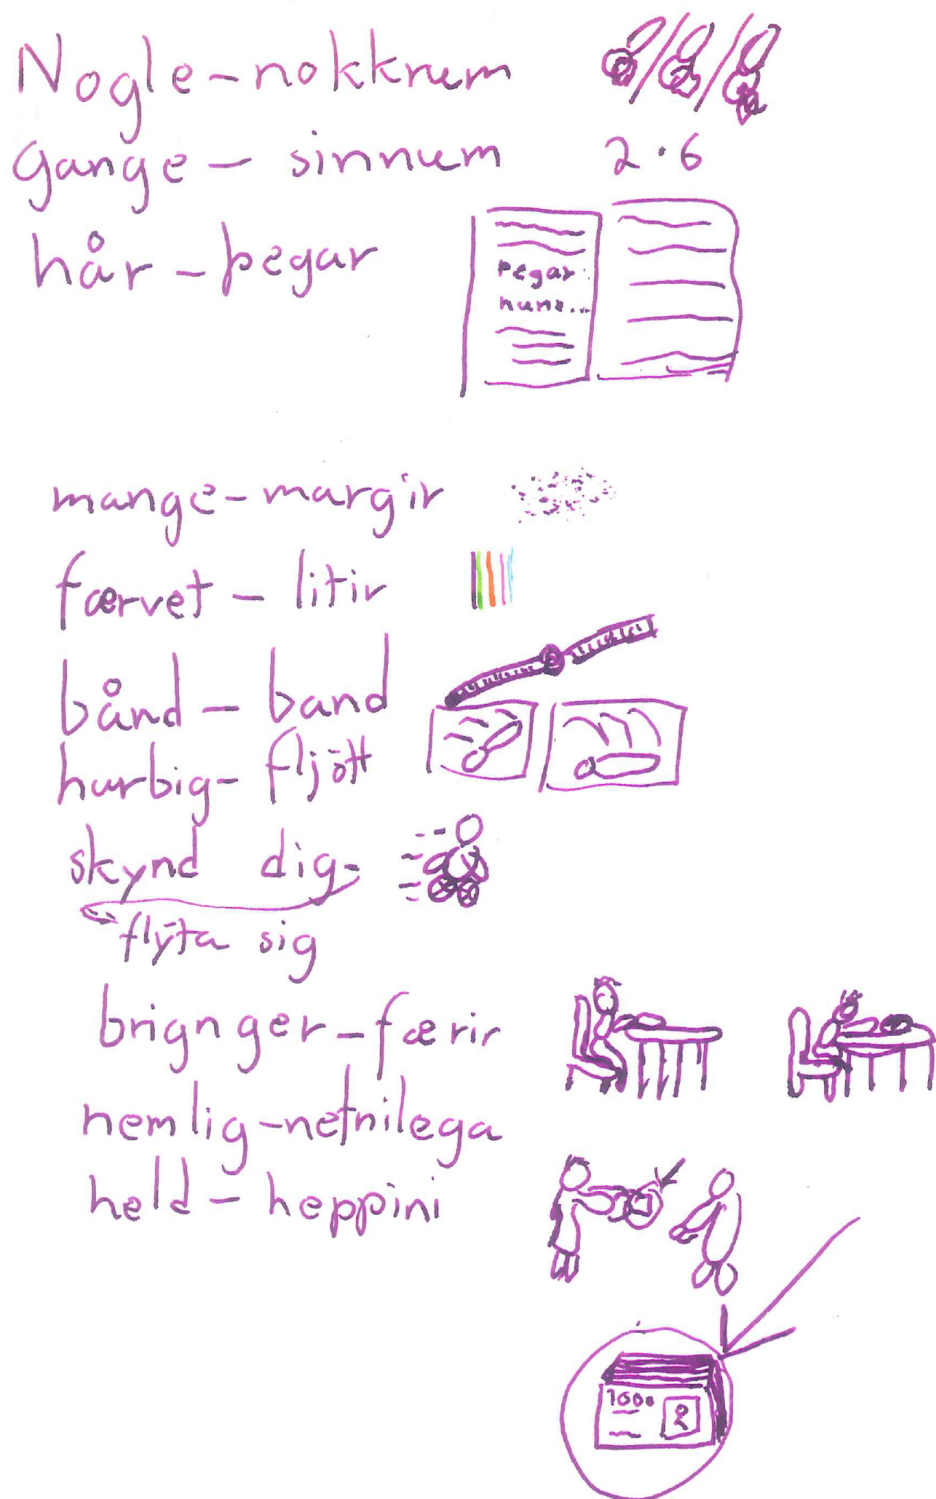 Nogle - nokkrum
gange - sinnum 2·6
hår - þegar
þegar
hún...
mange - margir
færvet - litir
bånd - band
hurbig - fljótt
skynd dig -
flýta sig
brignger - færir
nemlig - nefnilega
held - heppini
1000